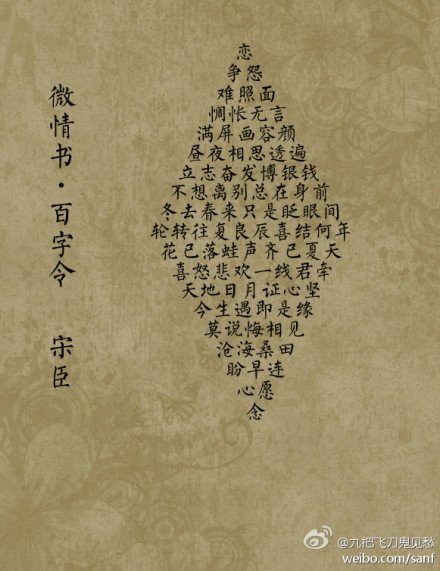 微情书·百字令 宋臣
恋
争怨
难照面
惆怅无言
满屏画容颜
昼夜相思透遍
立志奋发博银钱
不想离别总在身前
冬去春来只是眨眼间
轮转往复良辰喜结何年
花已落蛙声齐已夏天
喜怒悲欢一线君牵
天地日月证心坚
今生遇即是缘
莫说悔相见
沧海桑田
盼早连
心愿
念
@九把飞刀鬼见愁
weibo.com/sanf